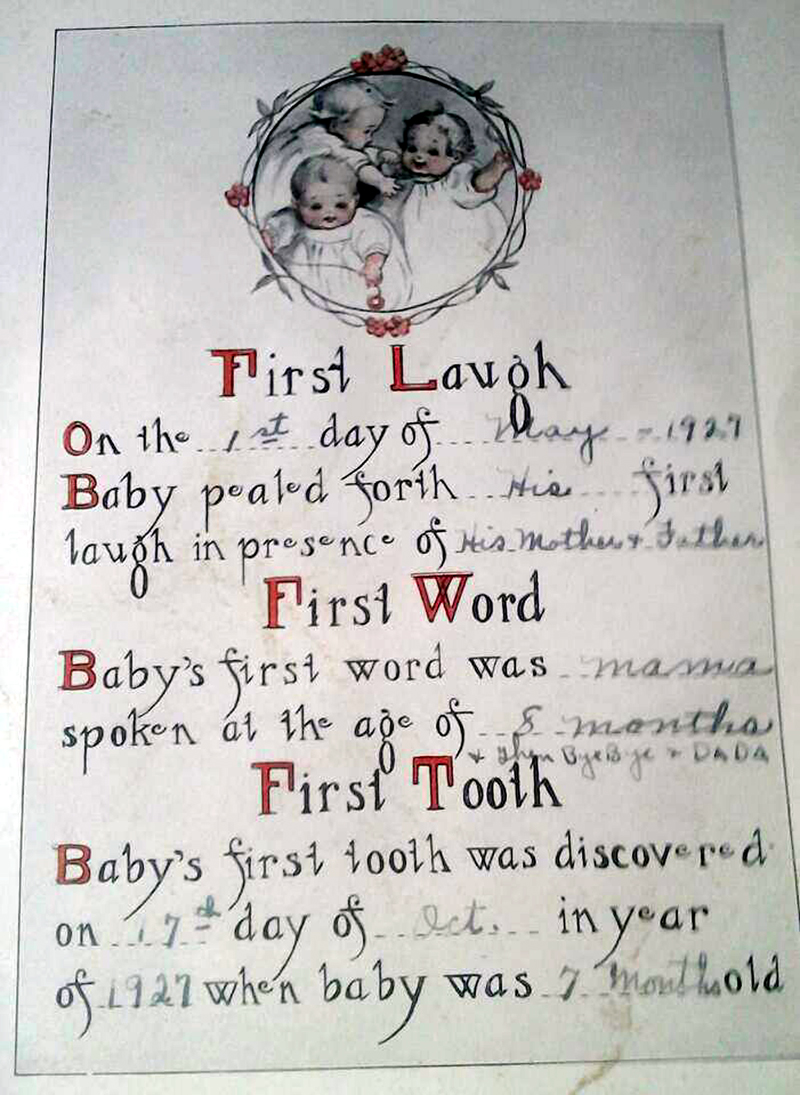 First Laugh
On the 1st day of May - 1927
Baby pealed forth His first
laugh in presence of His Mother & Father
First Word
Baby's first word was mama
spoken at the age of 8 months
& then ByeBye & DADA
First Tooth
Baby's first tooth was discovered
on 17th day of Oct. in year
of 1927 when baby was 7 Months old